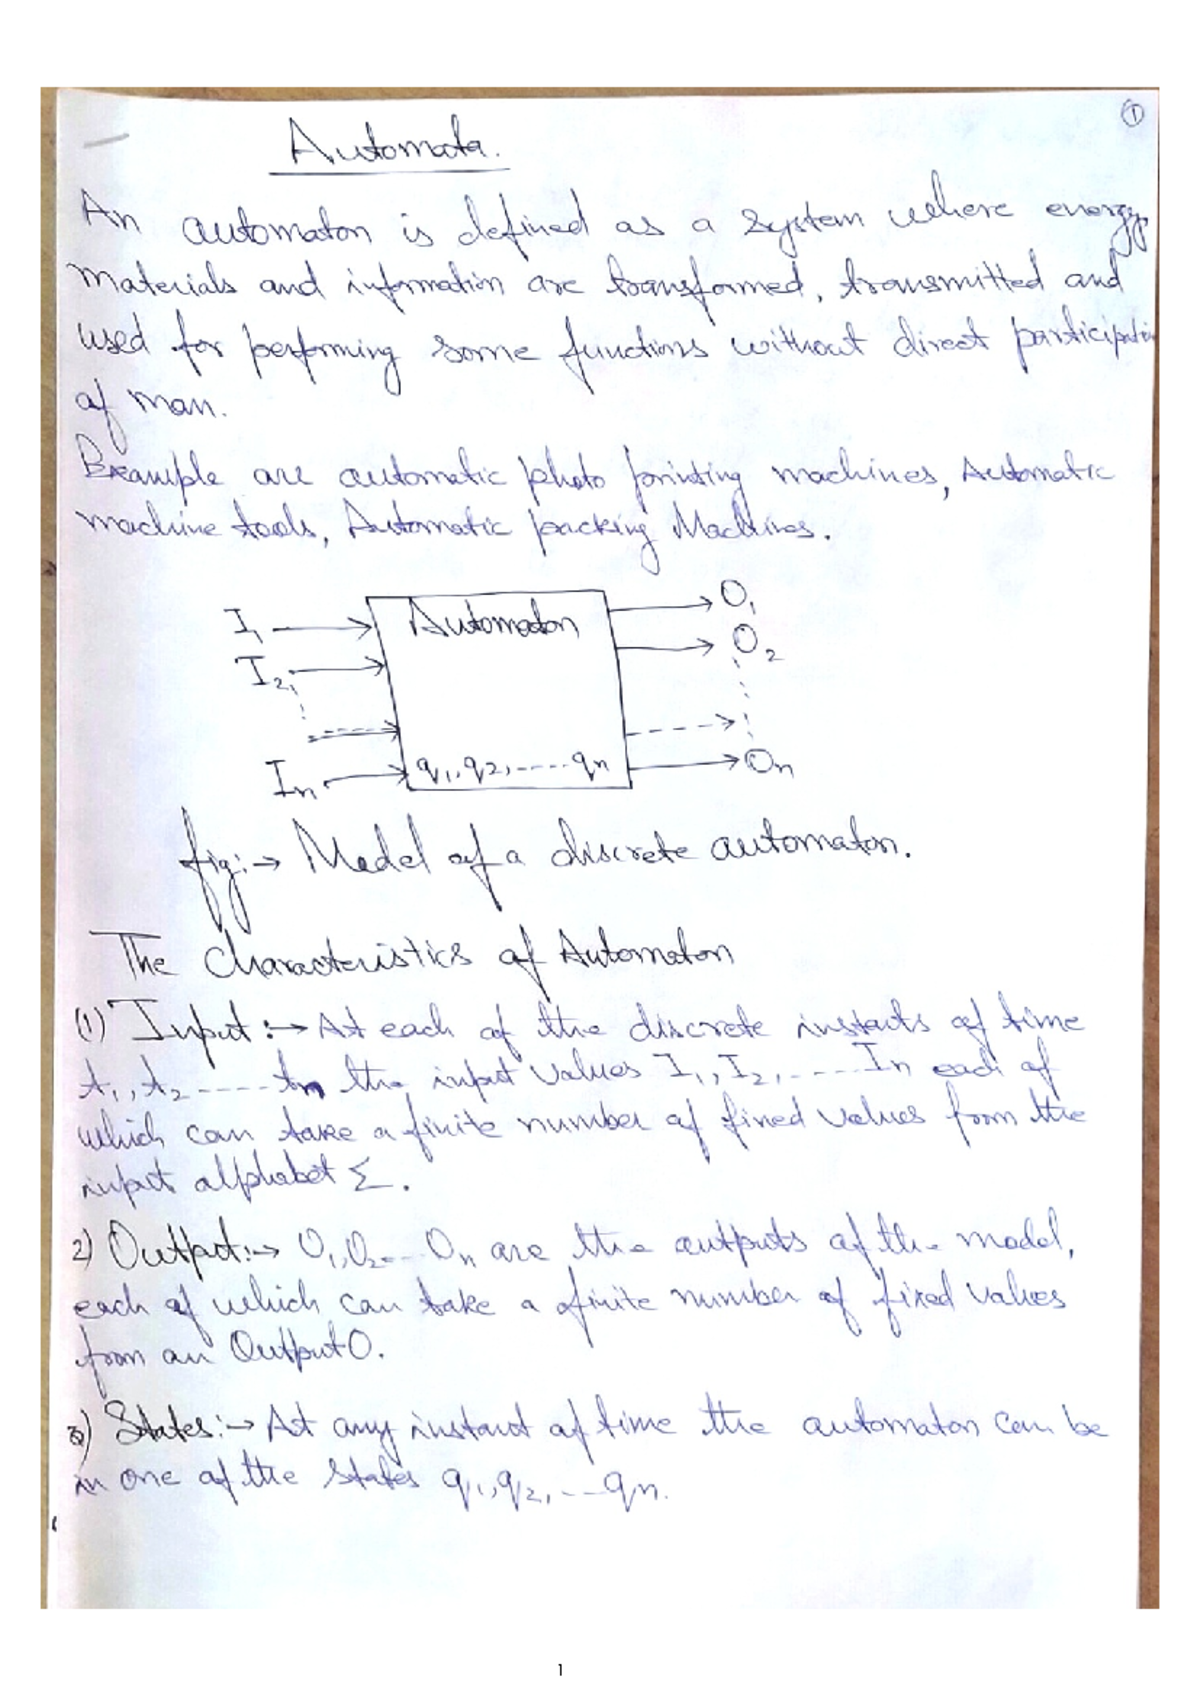 1
Automata.
An automaton is defined as a system where energy,
materials and information are transformed, transmitted and
used for performing some functions without direct participation
of man.
Example are automatic photo printing machines, Automatic
machine tools, Automatic packing Machines.
I1 Automaton O1
I2 O2
In q1, q2, ----- qn On
fig:→ Model of a discrete automaton.
The Characteristics of Automaton
(1) Input :→ At each of the discrete instants of time
t1, t2 ----- tn the input values I1, I2, ----- In each of
which can take a finite number of fixed values from the
input alphabet Σ.
2) Output:→ O1, O2 --- On are the outputs of the model,
each of which can take a finite number of fixed values
from an Output O.
3) States:→ At any instant of time the automaton can be
in one of the states q1, q2, --- qn.
1